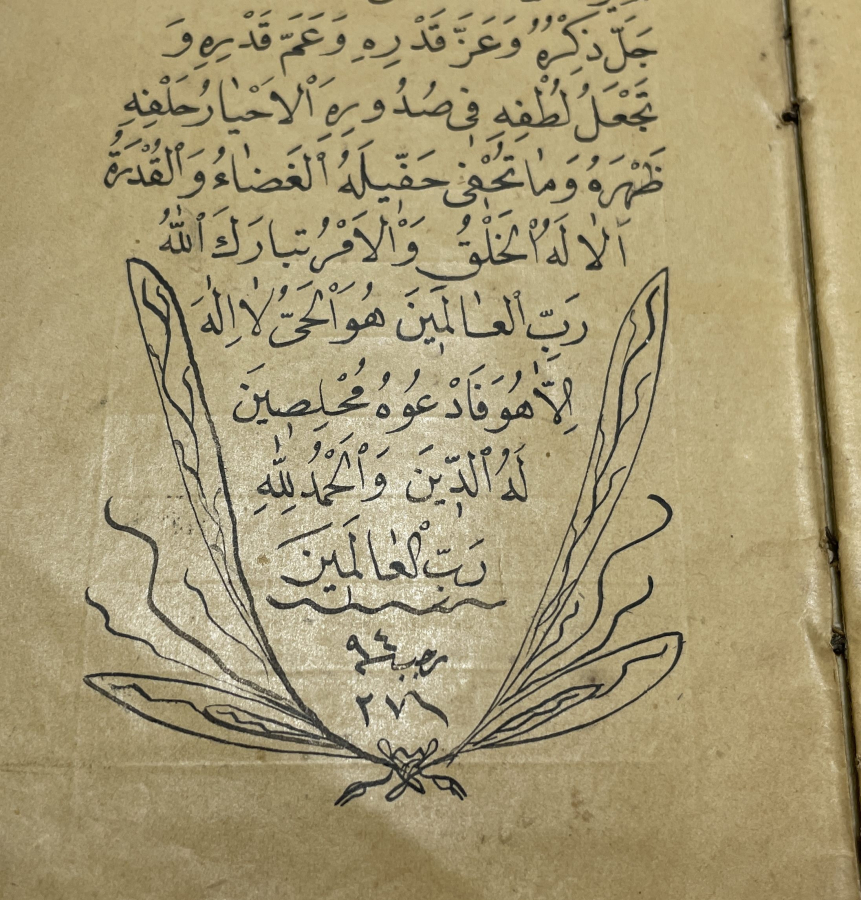 جَلَّ ذِكْرُهُ وَعَزَّ قَدْرِهِ وَعَمَّ قَدْرِهِ وَ
تَجْعَلُ لُطْفِهِ فِى صُدُورِهِ اَلْاَخْيارُ خَلْفِهِ
ظَهْرَهُ وَمٰا تَخُفْى لَهُ اَلْغَضٰاءُ وَالْقُدْرَةُ
اَلٰا لَهُ الْخَلْقُ وَالْاَمْرُ تَبارَكَ اللّٰهُ
رَبِّ الْعٰالَمِينَ هُوَ الْحَىُّ لٰا اِلٰهَ
اِلّٰا هُوَ فَادْعُوهُ مُخْلِصِينَ
لَهُ الدِّينَ وَالْحَمْدُ لِلّٰهِ
رَبِّ الْعٰالَمِينَ